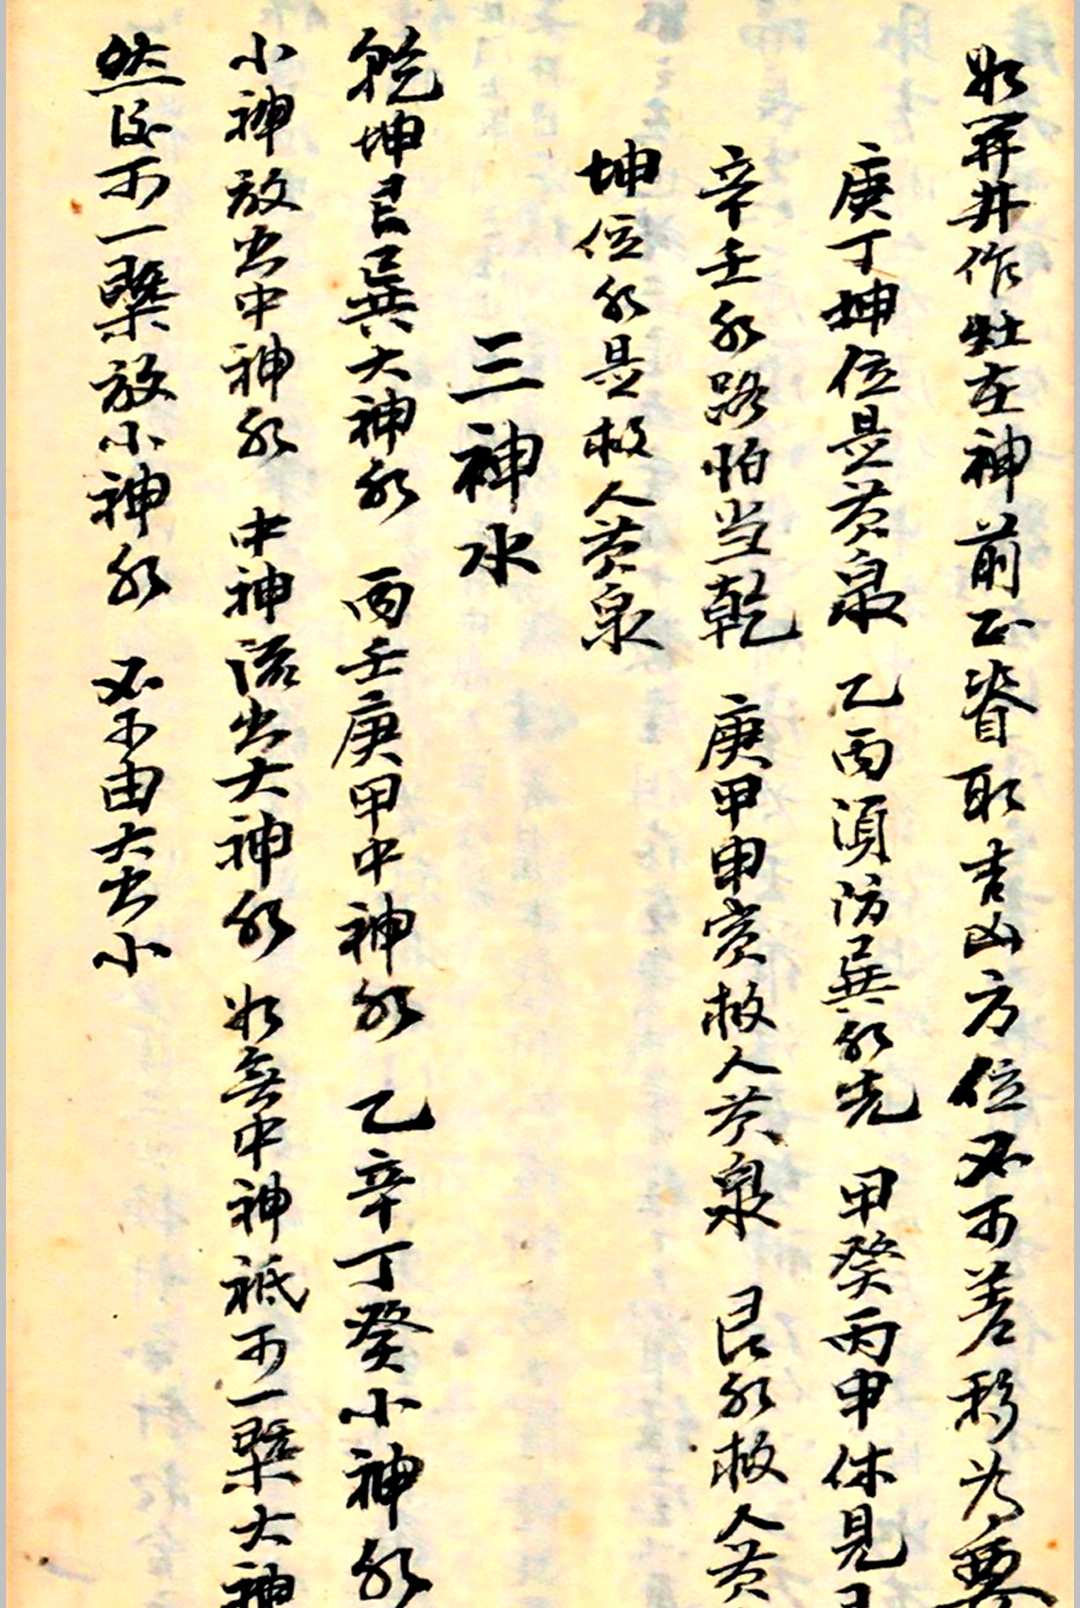 如開井作灶在神前正脊取吉凶方位必不可差移为要
庚丁坤位是黄泉 乙丙須防巽水先 甲癸丙申休見
辛壬水路怕当乾 庚甲申賓救人黄泉 艮水救人黄
坤位水是救人黄泉
三神水
乾坤艮巽大神水 丙壬庚甲中神水 乙辛丁癸小神水
小神放出中神水 中神流出大神水 如無中神祗可一槩大神
然后可一槩放小神水 必不由大出小